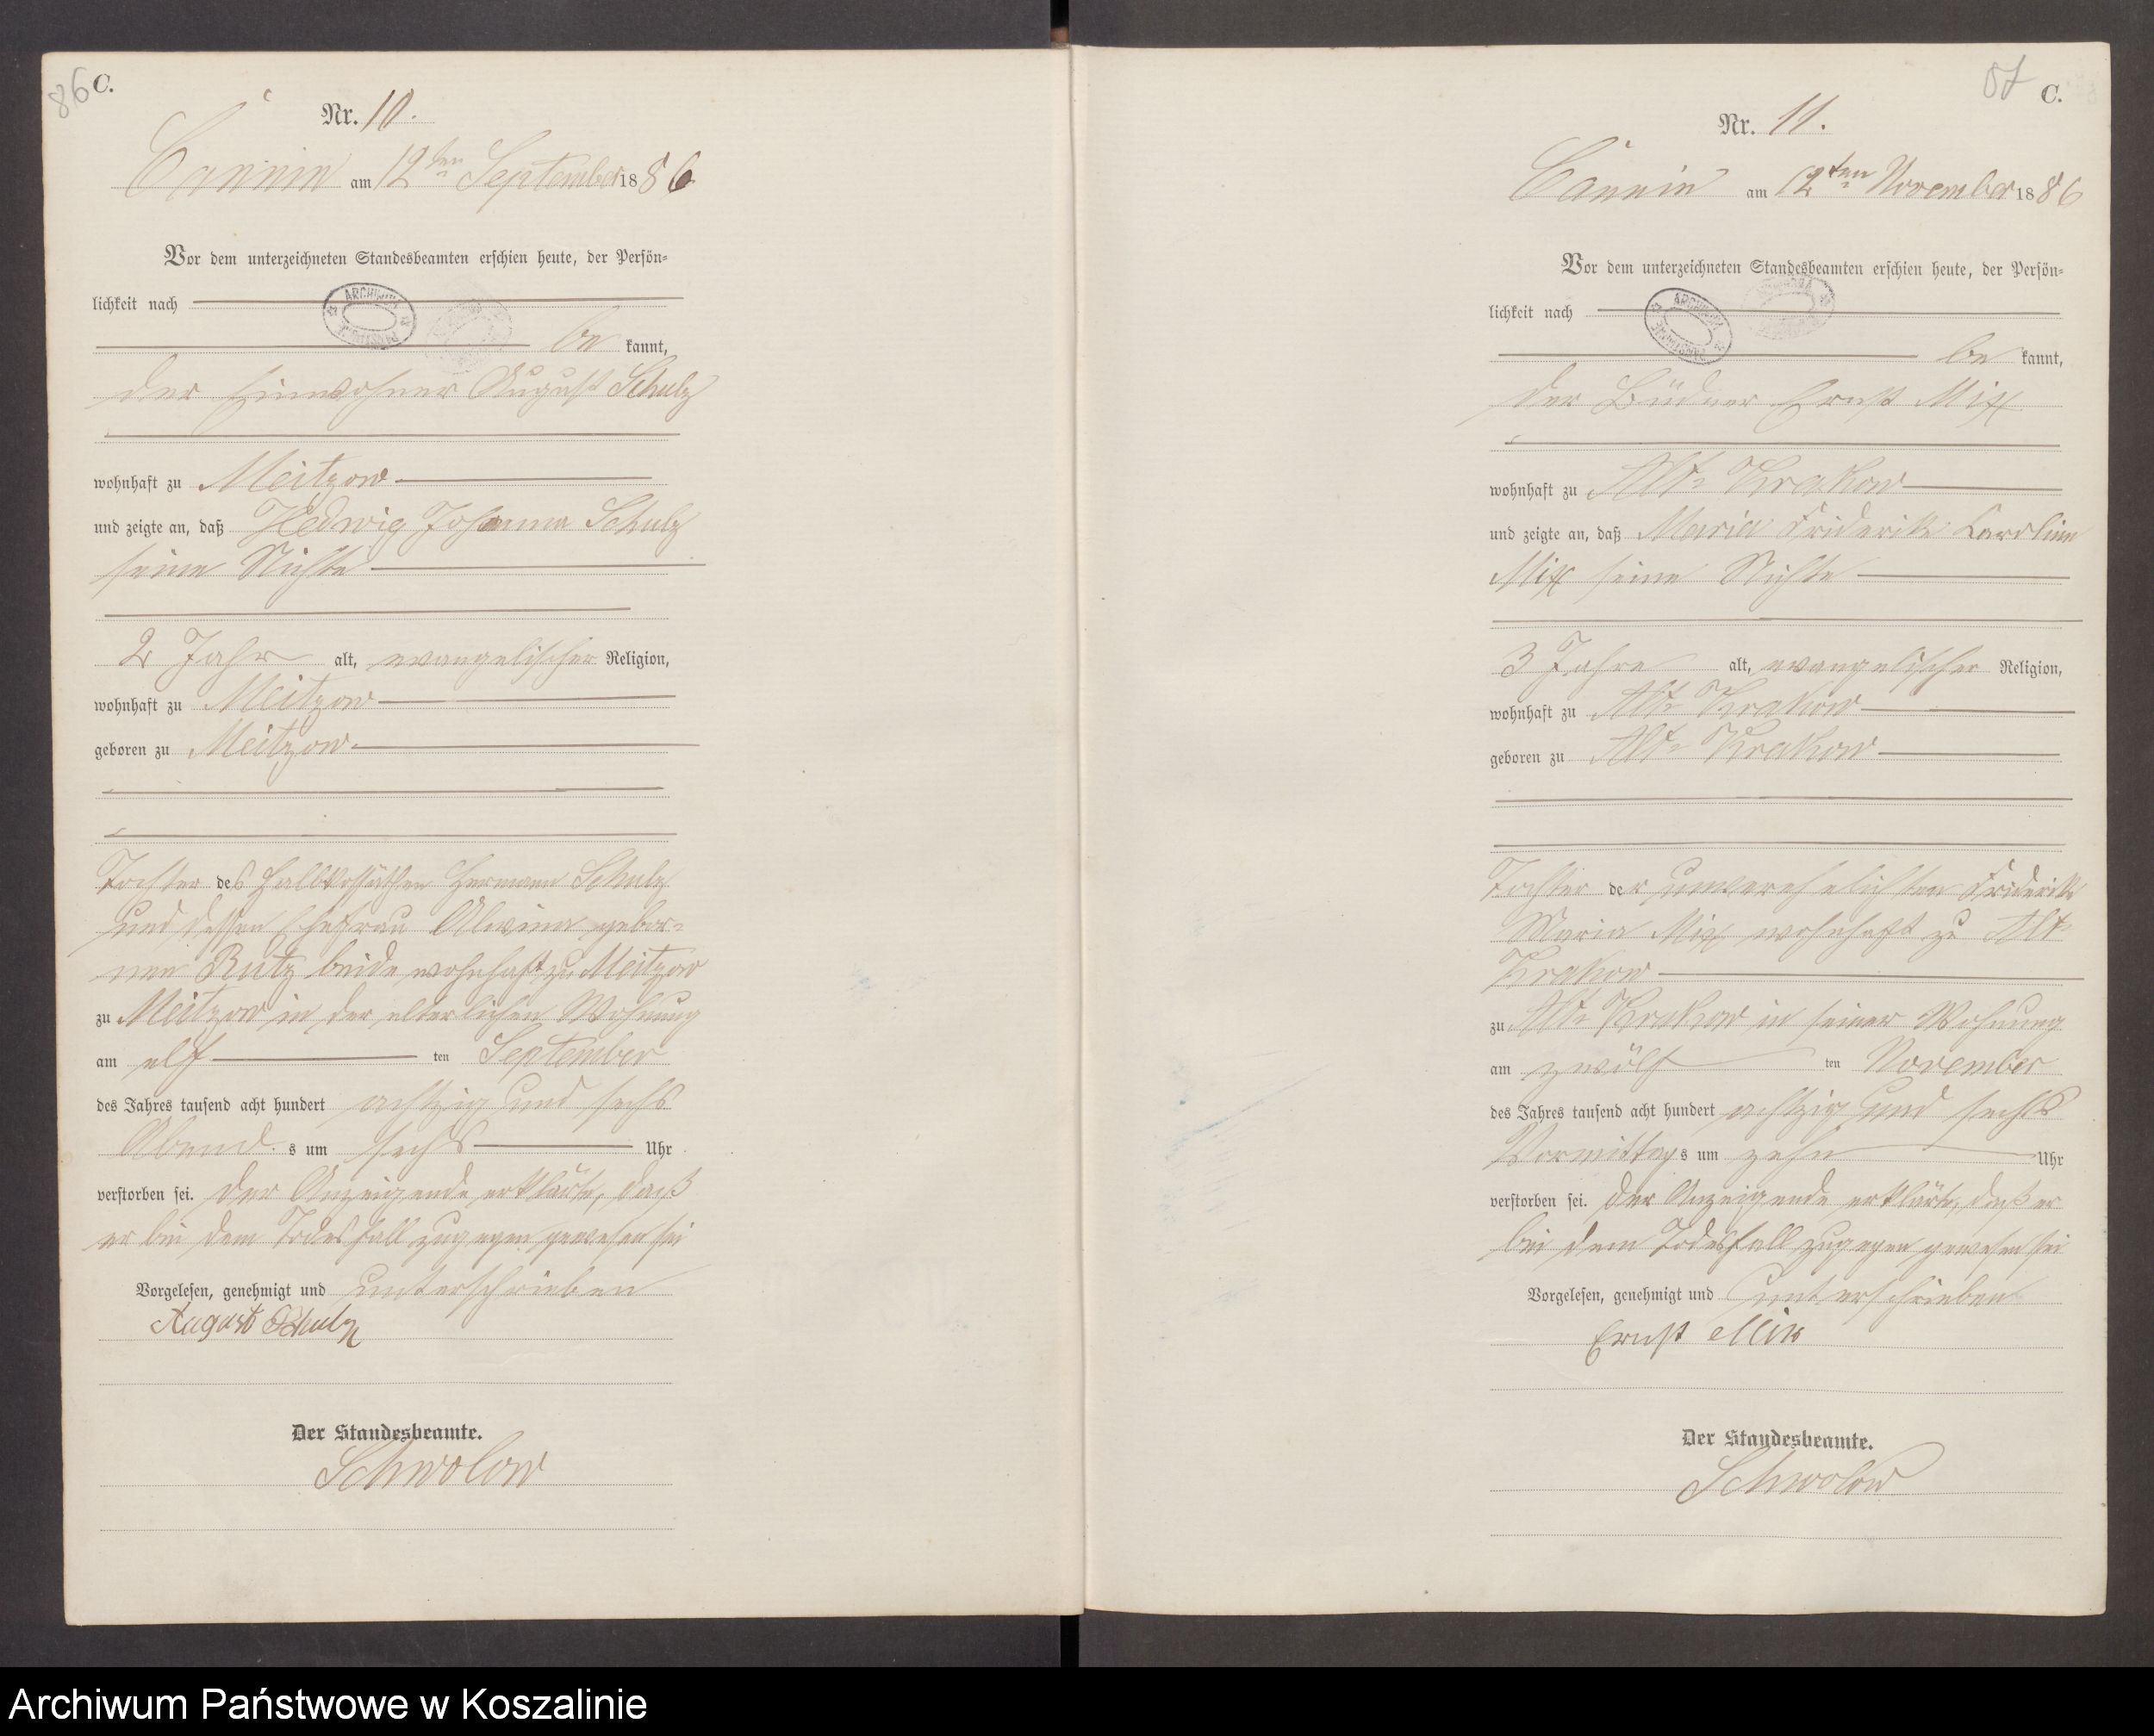 86 C.
Nr. 10.
Cannin am 12ten September 1886
Vor dem unterzeichneten Standesbeamten erschien heute, der Persön-
lichkeit nach
be kannt,
der Einwohner August Schulz
wohnhaft zu Meitzow
und zeigte an, daß Hedwig Johanna Schulz
seine Nichte
2 Jahr alt, evangelischer Religion,
wohnhaft zu Meitzow
geboren zu Meitzow
Tochter des Halbkossäthen Hermann Schulz
und dessen Ehefrau Alwine gebor-
nen Rutz beide wohnhaft zu Meitzow
zu Meitzow in der elterlichen Wohnung
am elf ten September
des Jahres tausend acht hundert achtzig und sechs
Abend s um sechs Uhr
verstorben sei. Der Anzeigende erklärte, daß
er bei dem Todesfall zugegen gewesen sei
Vorgelesen, genehmigt und unterschrieben
August Schulz
Der Standesbeamte.
Schwolow
87 C.
Nr. 11.
Cannin am 12ten November 1886
Vor dem unterzeichneten Standesbeamten erschien heute, der Persön-
lichkeit nach
be kannt,
der Büdner Ernst Mix
wohnhaft zu Alt- Krakow
und zeigte an, daß Maria Friderike Caroline
Mix seine Nichte
3 Jahre alt, evangelischer Religion,
wohnhaft zu Alt- Krakow
geboren zu Alt- Krakow
Tochter der unverehelichten Friderike
Maria Mix wohnhaft zu Alt-
Krakow
zu Alt- Krakow in seiner Wohnung
am zwölf ten November
des Jahres tausend acht hundert achtzig und sechs
Vormittags um zehn Uhr
verstorben sei. Der Anzeigende erklärte, daß er
bei dem Todesfall zugegen gewesen sei
Vorgelesen, genehmigt und unterschrieben
Ernst Mix
Der Standesbeamte.
Schwolow
Archiwum Państwowe w Koszalinie